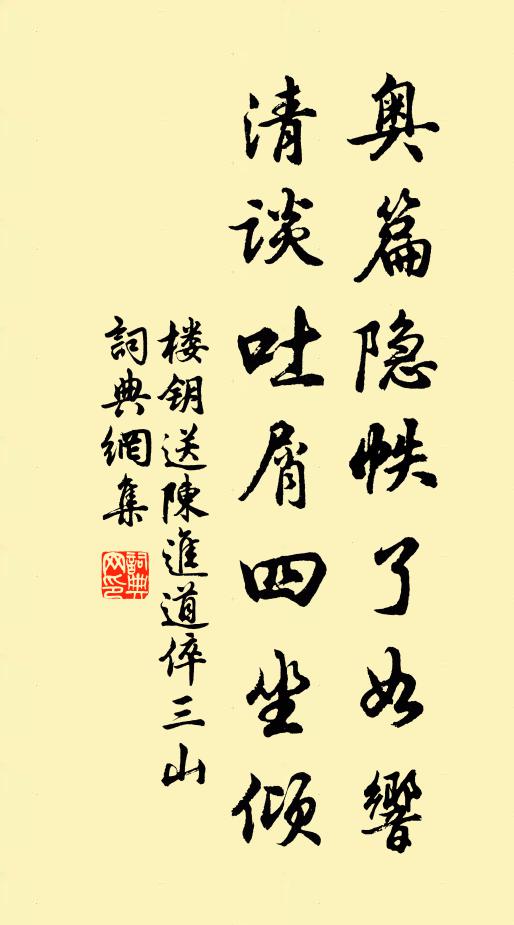 奥篇隐帙了如響
清談吐屑四坐傾
楼钥送陳進道倅三山
詞典網集
詞典网印